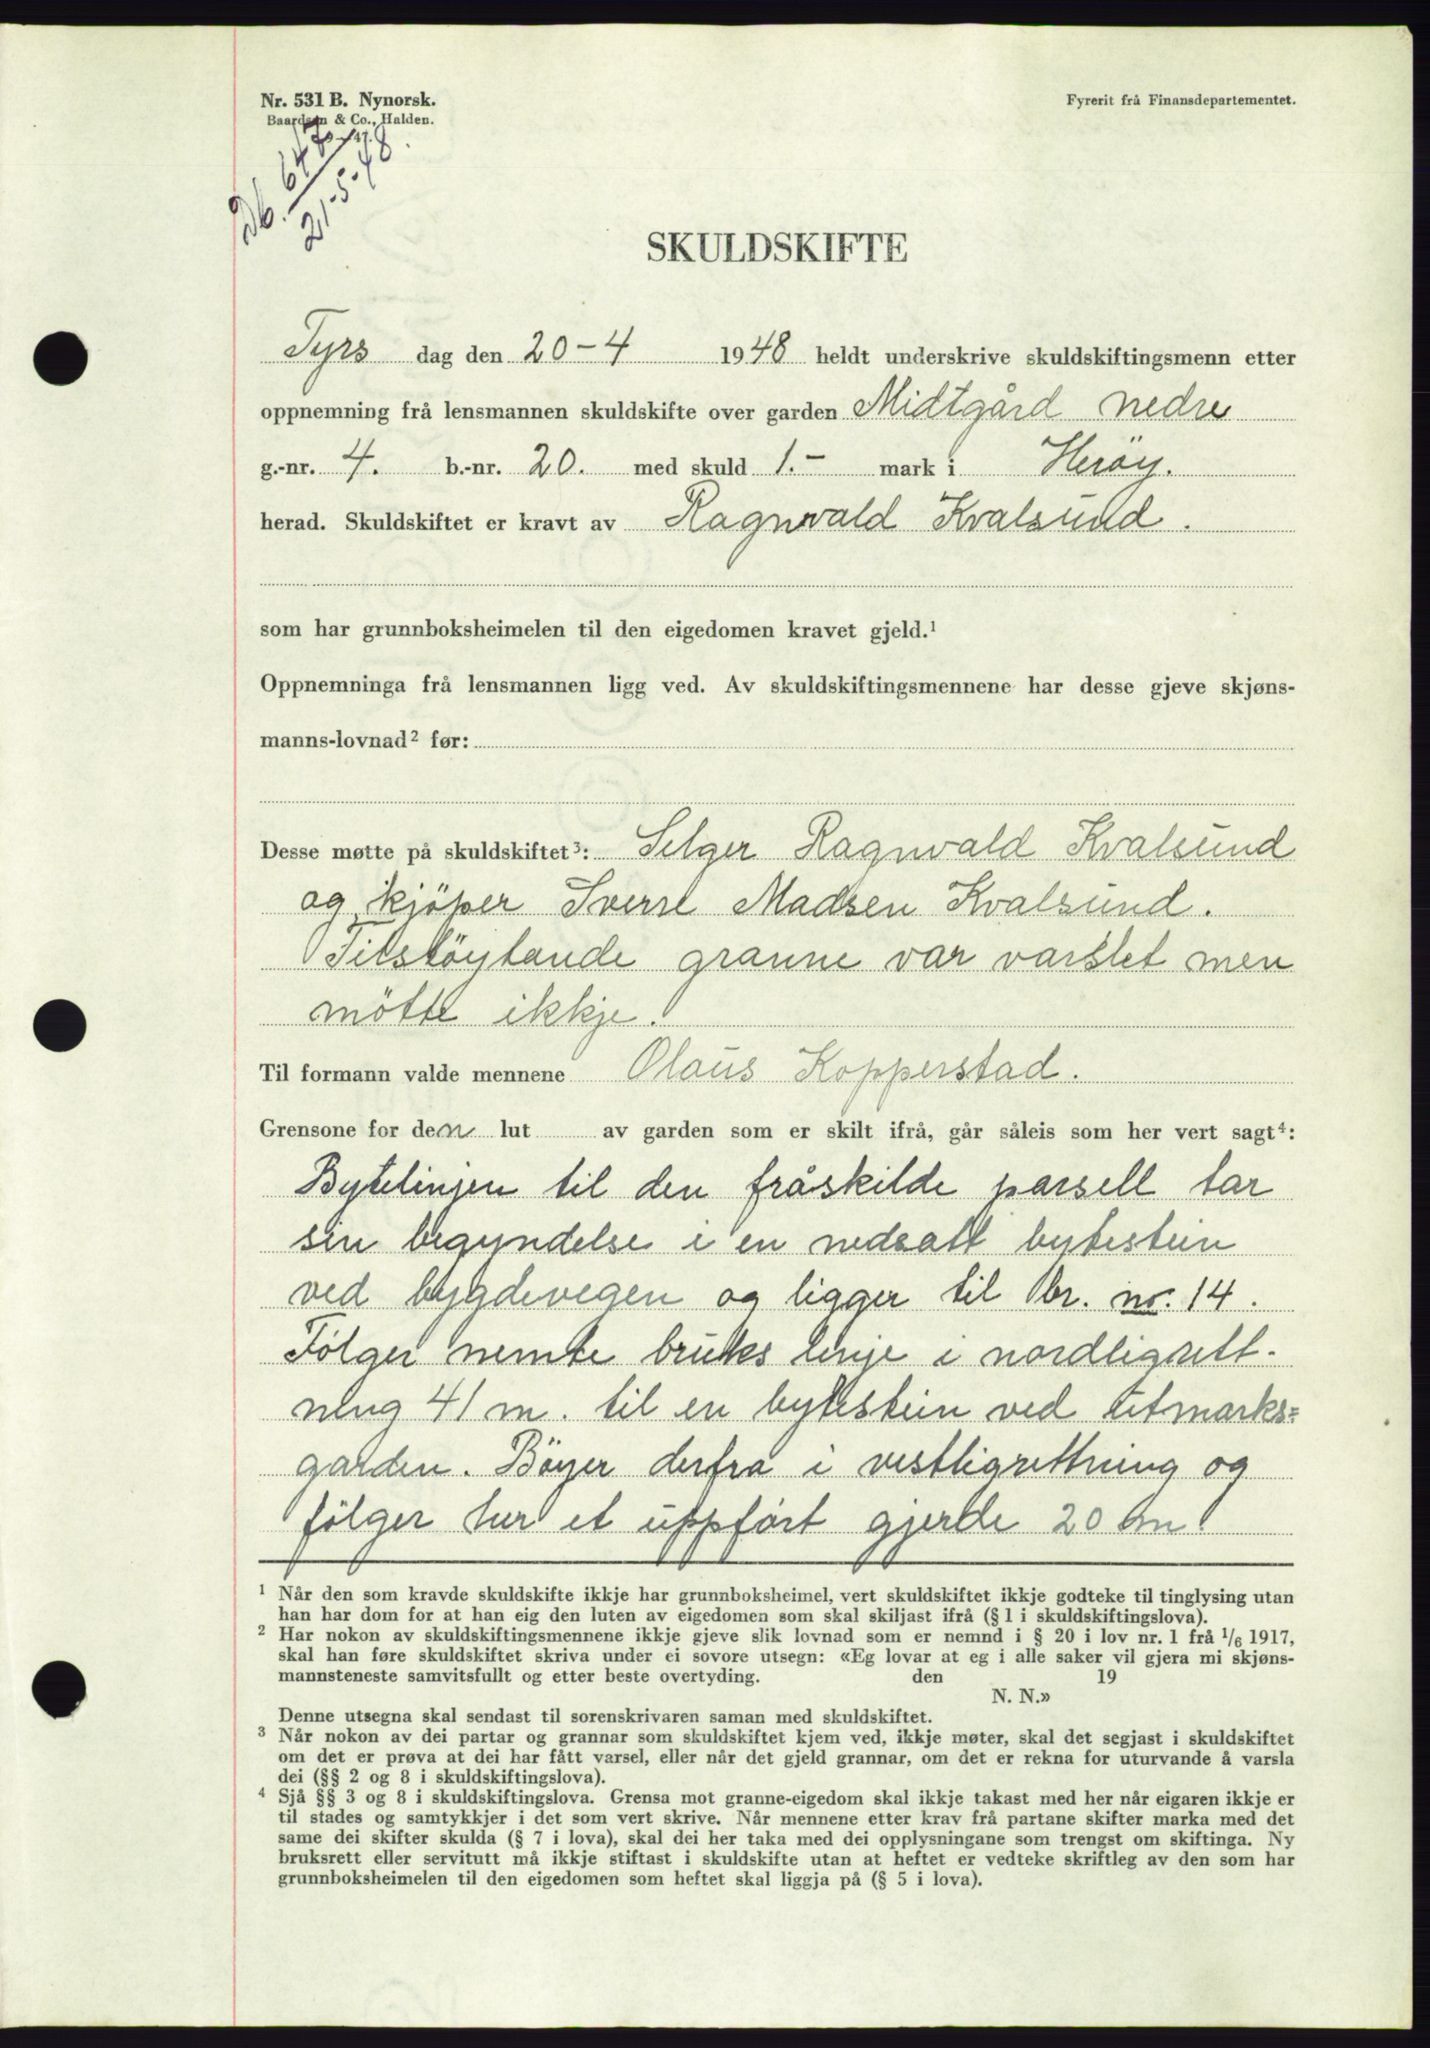 Nr. 531 B. Nynorsk.
Baardsen & Co., Halden.
Fyrerit frå Finansdepartementet.
Db. 647/21-5-48.
SKULDSKIFTE
Tyrs dag den 20-4 1948 heldt underskrive skuldskiftingsmenn etter
oppnemning frå lensmannen skuldskifte over garden Midtgård nedre
g.-nr. 4. b.-nr. 20. med skuld 1.- mark i Herøy.
herad. Skuldskiftet er kravt av Ragnvald Kvalsund.
som har grunnboksheimelen til den eigedomen kravet gjeld.¹
Oppnemninga frå lensmannen ligg ved. Av skuldskiftingsmennene har desse gjeve skjøns-
manns-lovnad² før:
Desse møtte på skuldskiftet³: Selger Ragnvald Kvalsund
og kjöper Sverre Madsen Kvalsund.
Tilstöytande granne var varslet men
mötte ikkje.
Til formann valde mennene Olaus Kopperstad.
Grensone for den lut av garden som er skilt ifrå, går såleis som her vert sagt⁴:
Bytelinjen til den fråskilde parsell tar
sin begyndelse i en nedsatt bytestein
ved bygdevegen og ligger til br. nr. 14.
Följer nemte bruks linje i nordligrett-
ning 41 m. til en bytestein ved utmarks=
garden. Böyer derfra i vestligrettning og
fölger her et uppfört gjerde 20 m.
¹ Når den som kravde skuldskifte ikkje har grunnboksheimel, vert skuldskiftet ikkje godteke til tinglysing utan
han har dom for at han eig den luten av eigedomen som skal skiljast ifrå (§ 1 i skuldskiftingslova).
² Har nokon av skuldskiftingsmennene ikkje gjeve slik lovnad som er nemnd i § 20 i lov nr. 1 frå 1/6 1917,
skal han føre skuldskiftet skriva under ei sovore utsegn: «Eg lovar at eg i alle saker vil gjera mi skjøns-
mannsteneste samvitsfullt og etter beste overtyding. den 19
N. N.»
Denne utsegna skal sendast til sorenskrivaren saman med skuldskiftet.
³ Når nokon av dei partar og grannar som skuldskiftet kjem ved, ikkje møter, skal det segjast i skuldskiftet
om det er prøva at dei har fått varsel, eller når det gjeld grannar, om det er rekna for uturvande å varsla
dei (§§ 2 og 8 i skuldskiftingslova).
⁴ Sjå §§ 3 og 8 i skuldskiftingslova. Grensa mot granne-eigedom skal ikkje takast med her når eigaren ikkje er
til stades og samtykkjer i det som vert skrive. Når mennene etter krav frå partane skifter marka med det
same dei skifter skulda (§ 7 i lova), skal dei her taka med dei opplysningane som trengst om skiftinga. Ny
bruksrett eller servitutt må ikkje stiftast i skuldskifte utan at heftet er vedteke skriftleg av den som har
grunnboksheimelen til den eigedomen som heftet skal liggja på (§ 5 i lova).